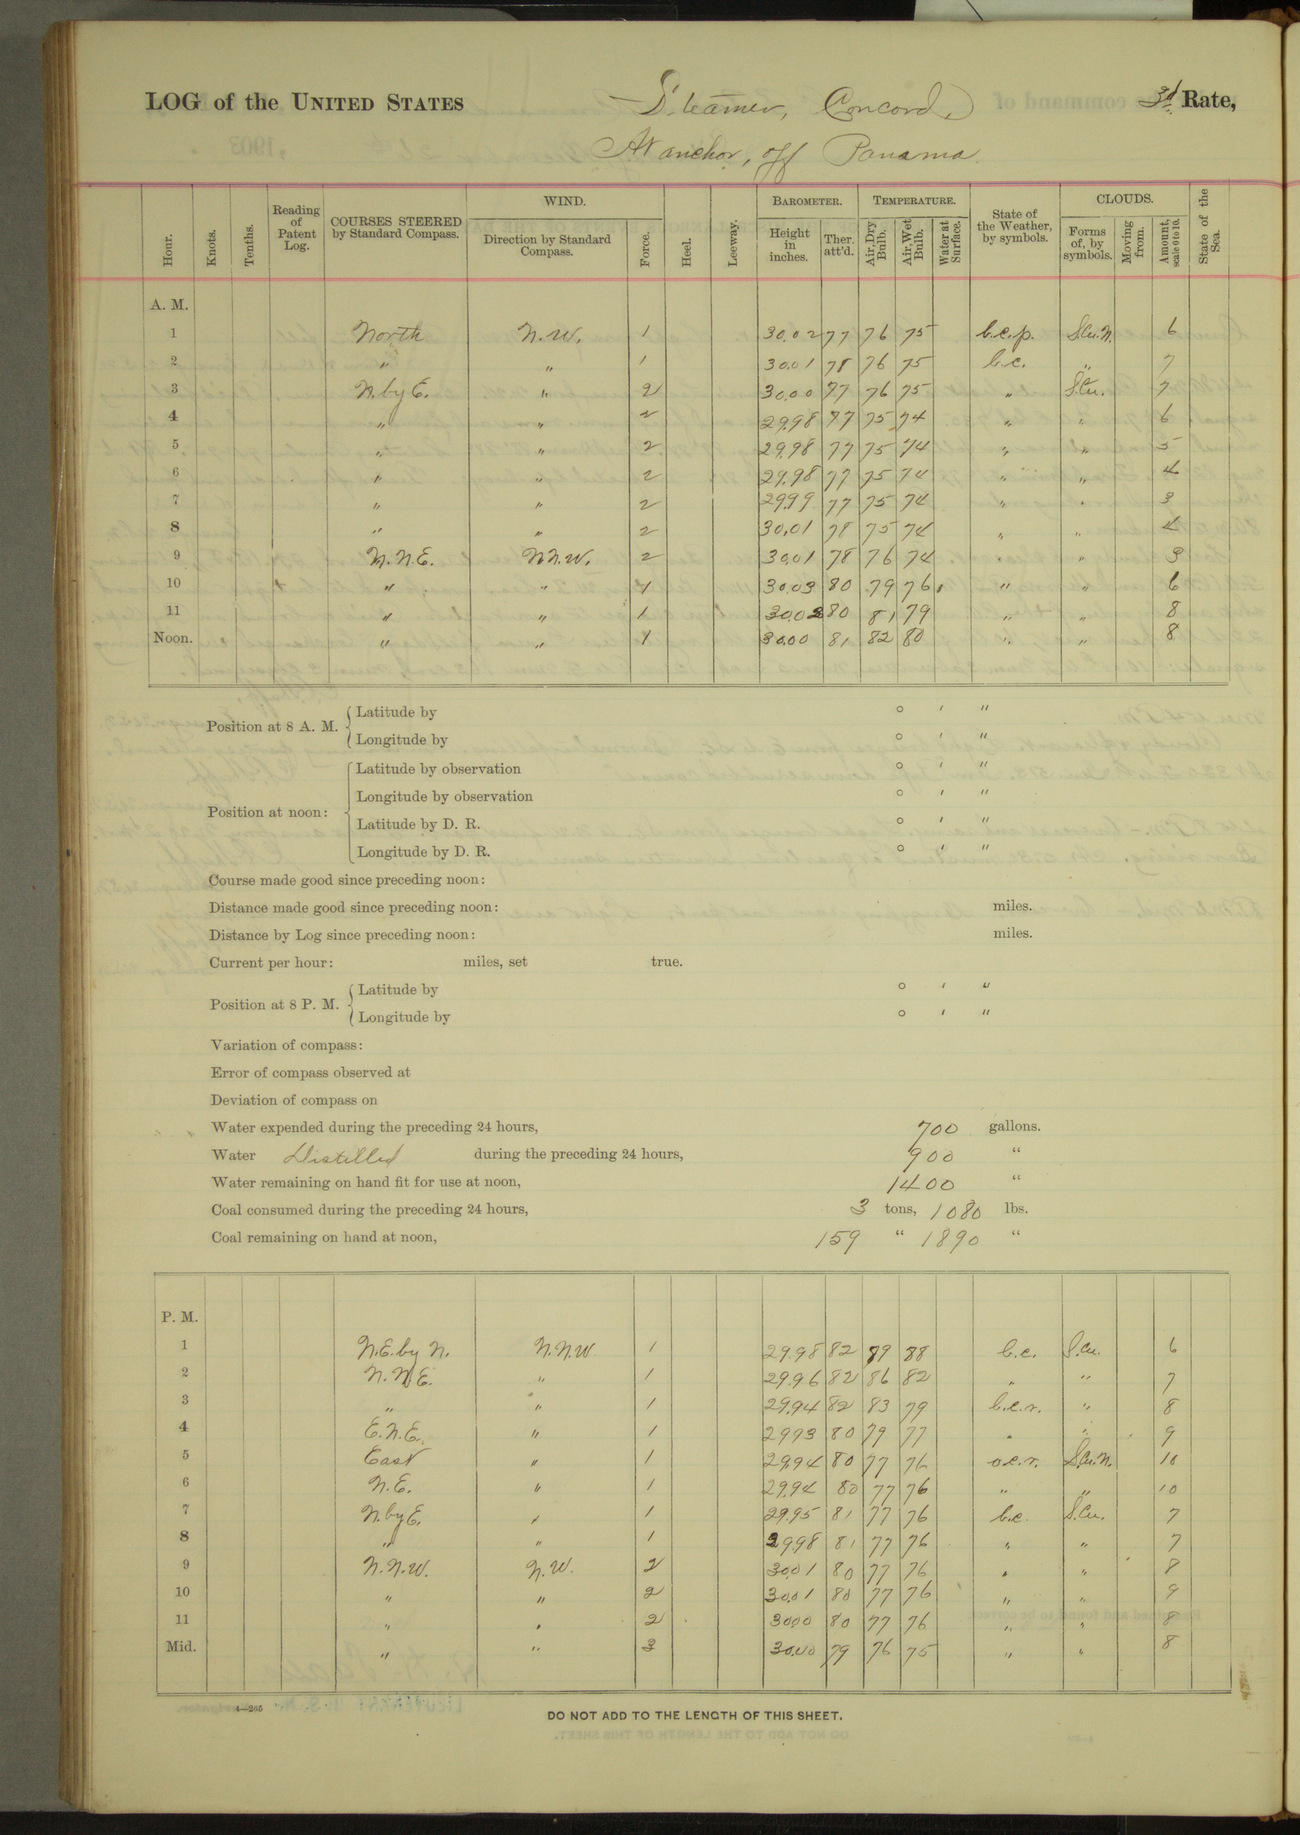 LOG of the UNITED STATES Steamer, Concord, 3d Rate,
At anchor, off Panama.
Hour. Knots. Tenths. Reading of Patent Log. COURSES STEERED by Standard Compass. WIND. Direction by Standard Compass. Force. Heel. Leeway. BAROMETER. Height in inches. Ther. att'd. TEMPERATURE. Air, Dry Bulb. Air, Wet Bulb. Water at Surface. State of the Weather, by symbols. CLOUDS. Forms of, by symbols. Moving from. Amount, scale 0 to 10. State of the Sea.
A. M.
1 North N.W. 1 30.02 77 76 75 b.c.p. S.Cu.N. 6
2 " " 1 30.01 78 76 75 b.c. " 7
3 N. by E. " 2 30.00 77 76 75 " S.Cu. 7
4 " " 2 29.98 77 75 74 " " 6
5 " " 2 29.98 77 75 74 " " 5
6 " " 2 29.98 77 75 74 " " 4
7 " " 2 29.99 77 75 74 " " 3
8 " " 2 30.01 78 75 74 " " 4
9 N.N.E. N.N.W. 2 30.01 78 76 74 " " 3
10 " " 1 30.03 80 79 76 " " 6
11 " " 1 30.02 80 81 79 " " 8
Noon. " " 1 30.00 81 82 80 " " 8
Position at 8 A. M. Latitude by ° ′ ″
Longitude by ° ′ ″
Position at noon: Latitude by observation ° ′ ″
Longitude by observation ° ′ ″
Latitude by D. R. ° ′ ″
Longitude by D. R. ° ′ ″
Course made good since preceding noon:
Distance made good since preceding noon: miles.
Distance by Log since preceding noon: miles.
Current per hour: miles, set true.
Position at 8 P. M. Latitude by ° ′ ″
Longitude by ° ′ ″
Variation of compass:
Error of compass observed at
Deviation of compass on
Water expended during the preceding 24 hours, 700 gallons.
Water Distilled during the preceding 24 hours, 900 "
Water remaining on hand fit for use at noon, 1400 "
Coal consumed during the preceding 24 hours, 3 tons, 1080 lbs.
Coal remaining on hand at noon, 159 " 1890 "
P. M.
1 N.E. by N. N.N.W 1 29.98 82 89 88 b.c. S.Cu. 6
2 N.N.E. " 1 29.96 82 86 82 " " 7
3 " " 1 29.94 82 83 79 b.c.r. " 8
4 E.N.E. " 1 29.93 80 79 77 " " 9
5 East " 1 29.94 80 77 76 o.c.r. S.Cu.N. 10
6 N.E. " 1 29.94 80 77 76 " " 10
7 N. by E. " 1 29.95 81 77 76 b.c. S.Cu. 7
8 " " 1 29.98 81 77 76 " " 7
9 N.N.W. N.W. 2 30.01 80 77 76 " " 8
10 " " 2 30.01 80 77 76 " " 9
11 " " 2 30.00 80 77 76 " " 8
Mid. " " 3 30.00 79 76 75 " " 8
4—265
DO NOT ADD TO THE LENGTH OF THIS SHEET.